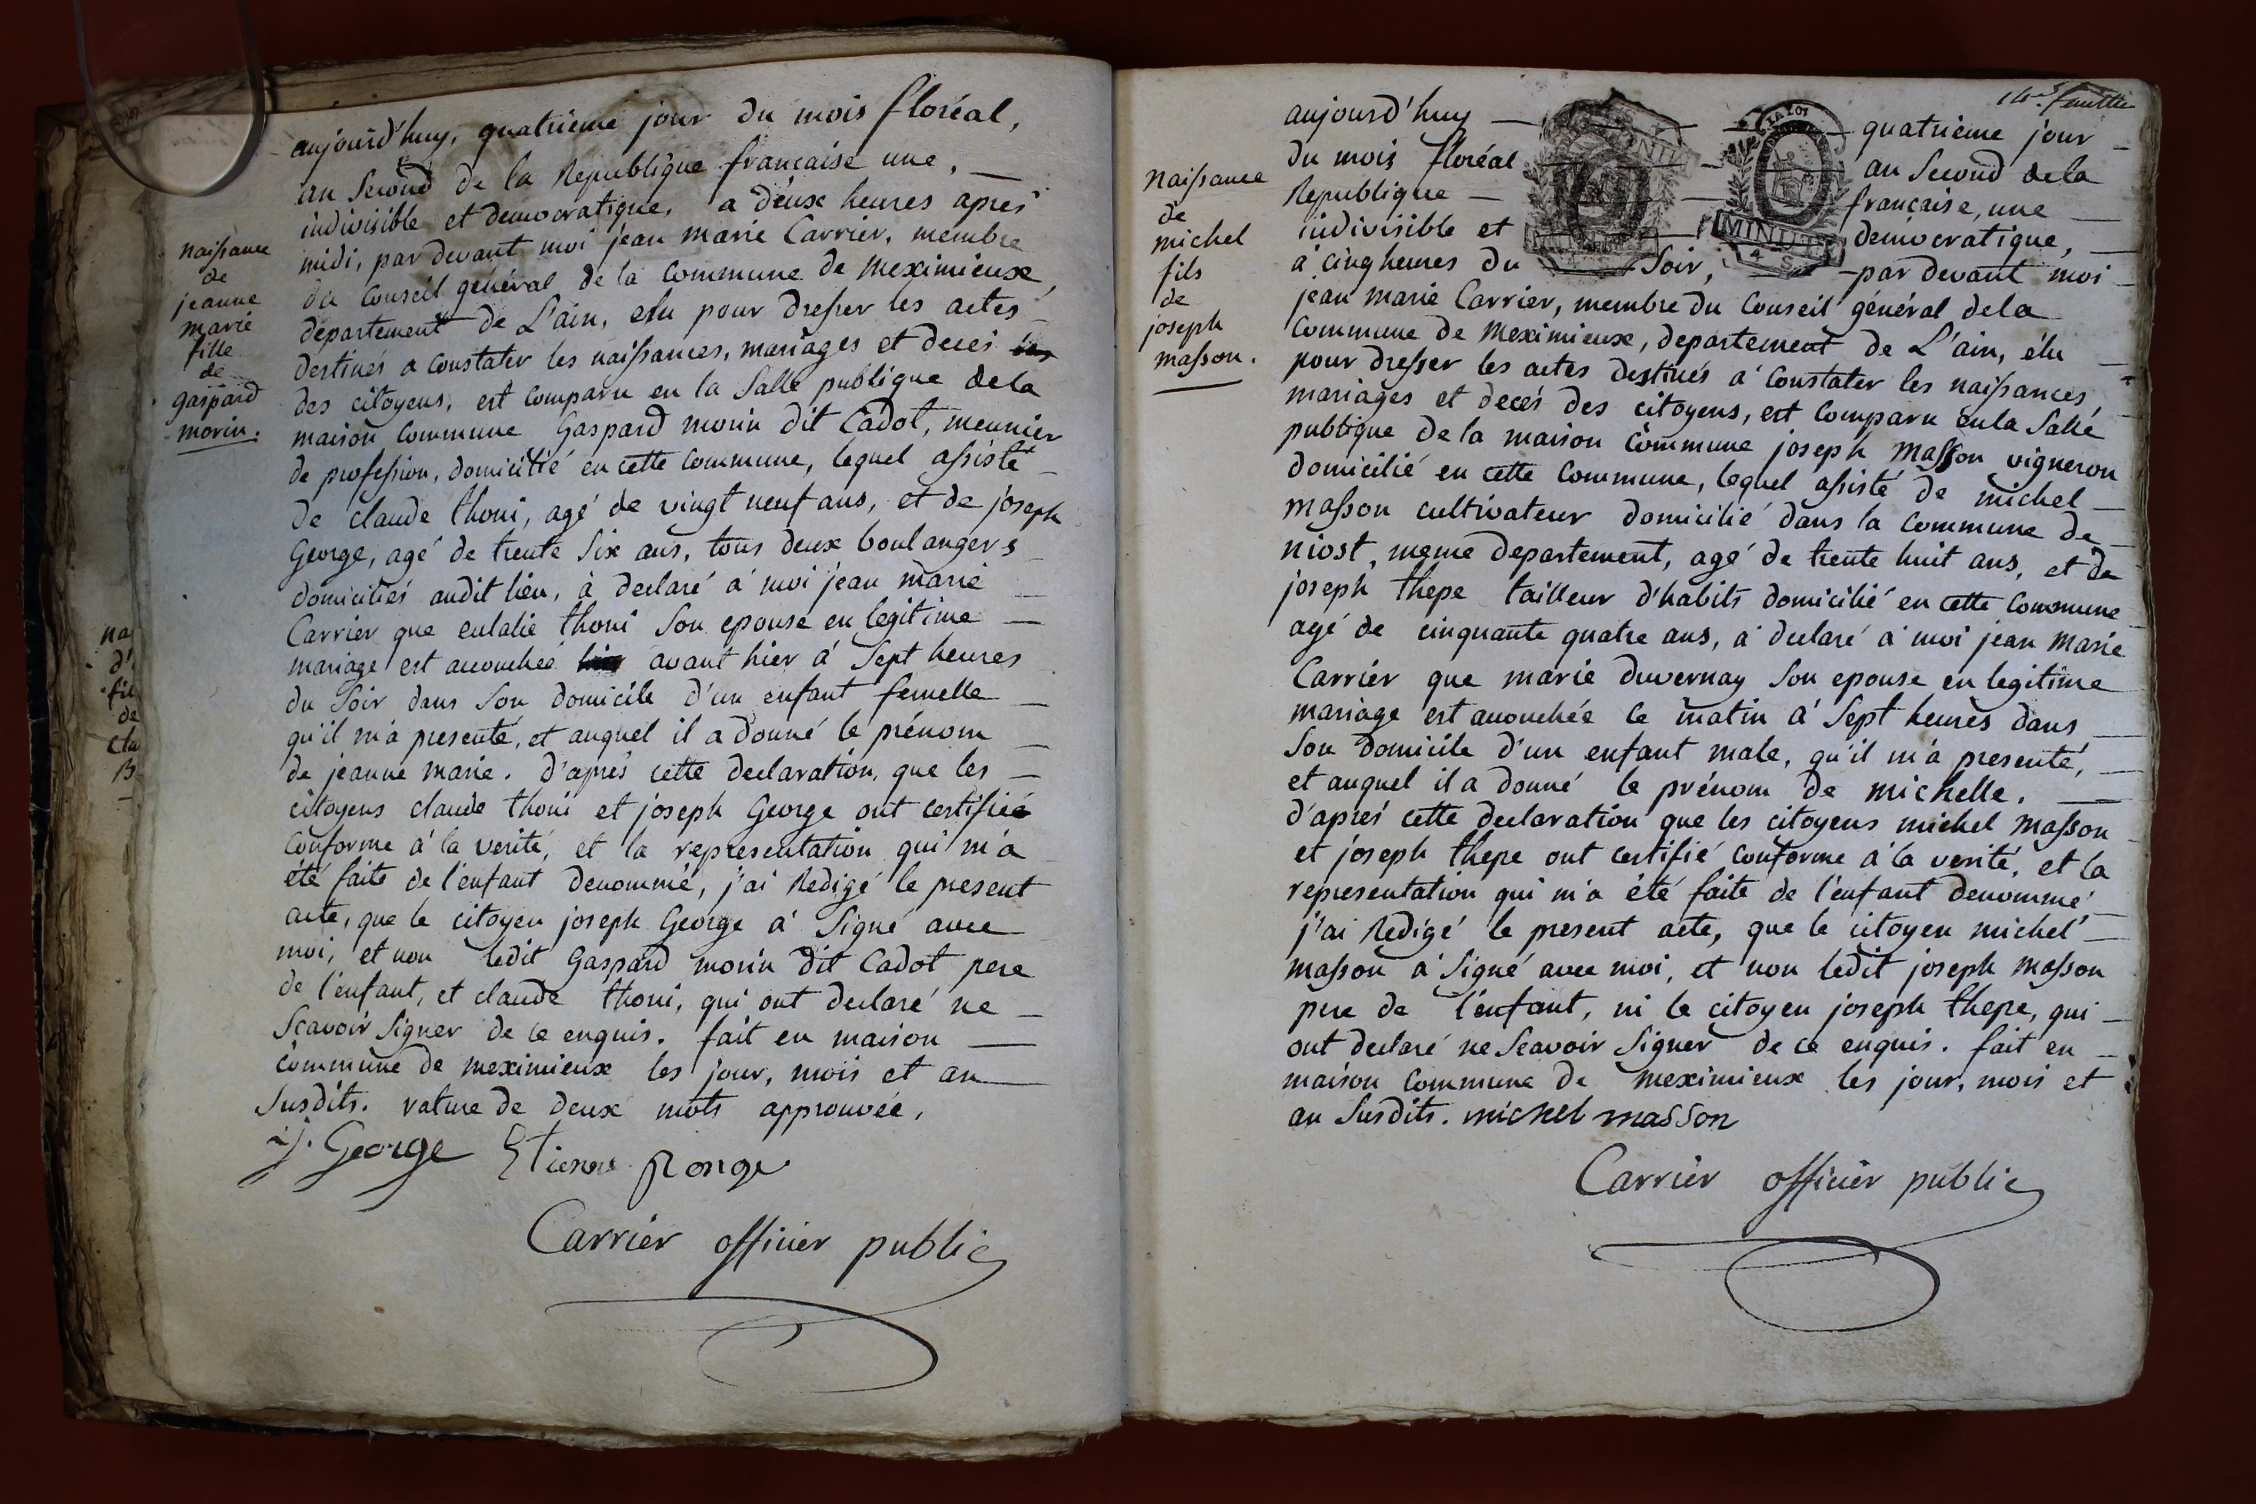 naissance
de
jeanne
marie
fille
de
gaspard
morin.
aujourd'huy, quatrieme jour du mois floréal,
an second de la Republique française une,
indivisible et democratique, a deux heures après
midi, par devant moi jean marie Carrier, membre
du Conseil général de la Commune de meximieux,
departement de L'ain, elu pour dresser les actes
destinés a constater les naissances, mariages et decès
des citoyens, est comparu en la Salle publique de la
maison commune Gaspard morin dit Cadot, meunier
de profession, domicilié en cette commune, lequel assisté
de claude thoni, agé de vingt neuf ans, et de joseph
George, agé de trente six ans, tous deux boulangers
domiciliés audit lieu, à declaré a moi jean marie
Carrier que eulalie thoni Son epouse en legitime
mariage est acouchée avant hier á Sept heures
du Soir dans Son domicile d'un enfant femelle
qu'il m'a presenté, et auquel il a donné le prénom
de jeanne marie. d'après cette declaration, que les
citoyens claude thoni et joseph George ont certifié
conforme á la verité, et la representation qui m'a
été faite de l'enfant denommé, j'ai Redigé le present
acte, que le citoyen joseph George á Signé avec
moi, et non ledit Gaspard morin dit Cadot pere
de l'enfant, et claude thoni, qui ont declaré ne
Scavoir Signer de ce enquis. fait en maison
commune de meximieux les jour, mois et an
Susdits. rature de deux mots approuvée.
j. George Etienne ronge
Carrier officier public
na
d'
fil
de
Cla
B
14e feuillet
naissance
de
michel
fils
de
joseph
masson.
aujourd'huy quatrieme jour
du mois floréal an Second de la
Republique française, une
indivisible et democratique,
à cinq heures du Soir, par devant moi
jean marie Carrier, membre du Conseil général de la
Commune de Meximieux, departement de L'ain, élu
pour dresser les actes destinés a constater les naissances,
mariages et decés des citoyens, est comparu en la Salle
publique de la maison commune joseph Masson vigneron
domicilié en cette Commune, lequel assisté de michel
masson cultivateur domicilié dans la commune de
niost, meme departement, agé de trente huit ans, et de
joseph thepe tailleur d'habits domicilié en cette Commune
agé de cinquante quatre ans, a declaré a moi jean marie
Carrier que marie duvernay Son epouse en legitime
mariage est acouchée ce matin á Sept heures dans
Son domicile d'un enfant male, qu'il m'a presenté,
et auquel il a donné le prénom de michelle.
d'après cette declaration que les citoyens michel masson
et joseph thepe ont certifié conforme á la verité, et la
representation qui m'a été faite de l'enfant denommé
j'ai Redigé le present acte, que le citoyen michel
masson a Signé avec moi, et non ledit joseph masson
pere de l'enfant, ni le citoyen joseph thepe, qui
ont declaré ne Scavoir Signer de ce enquis. fait en
maison commune de meximieux les jour, mois et
an Susdits. michel masson
Carrier officier public
LA LOI
MINUTE
4 S